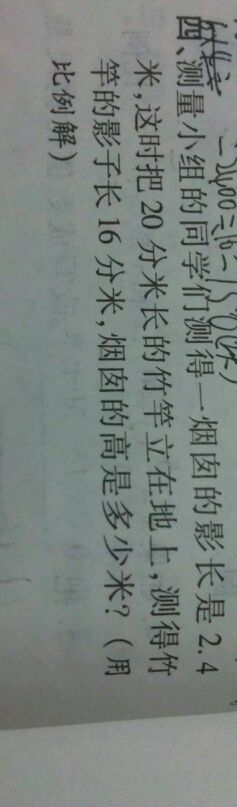 -2400=16-150(米)
四、测量小组的同学们测得一烟囱的影长是2.4
米,这时把20分米长的竹竿立在地上,测得竹
竿的影子长16分米,烟囱的高是多少米?(用
比例解)